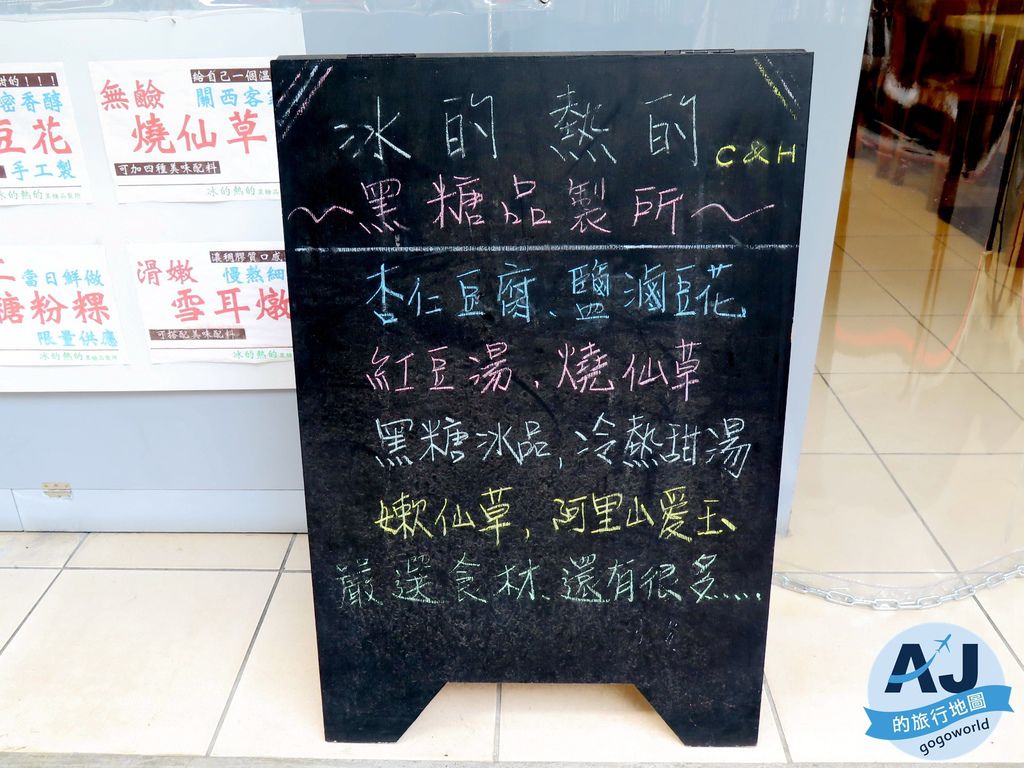 冰的熱的 C&H
~黑糖品製所~
杏仁豆腐、鹽滷豆花
紅豆湯、燒仙草
黑糖冰品,冷熱甜湯
嫩仙草,阿里山愛玉
嚴選食材、還有很多.....
香醇
豆花
手工製
冰的熱的黑糖品製所
給自己一個溫
無鹼
關西客
燒仙草
可加四種美味配料
冰的熱的黑糖品製所
當日鮮做
糖粉粿
限量供應
冰的熱的黑糖品製所
濃稠膠質口感
滑嫩
慢熬細
雪耳燉
可搭配美味配料
冰的熱的黑
AJ
的旅行地圖
gogoworld